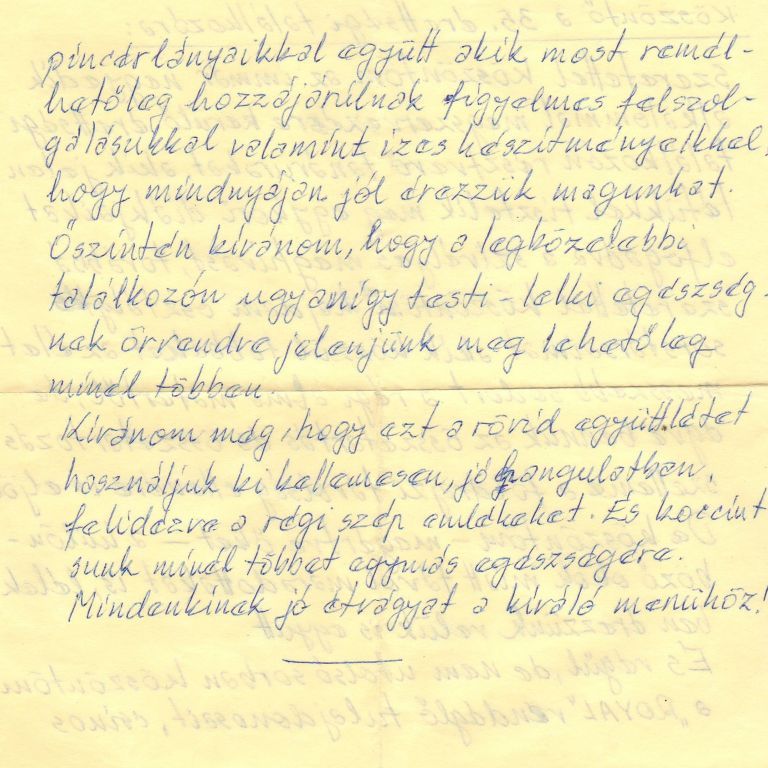 pincérlányaikkal együtt akik most remél-
hetőleg hozzájárulnak figyelmes felszol-
gálásukkal valamint izes készítményeikkel,
hogy mindnyájan jól érezzük magunkat.
Őszintén kívánom, hogy a legközelebbi
találkozón ugyanígy testi-lelki egészség-
nek örvendve jelenjünk meg lehetőleg
minél többen
Kívánom még, hogy ezt a rövid együttlétet
használjuk ki kellemesen, jó hangulatban,
felidézve a régi szép emlékeket. És koccint
sunk minél többet egymás egészségére.
Mindenkinek jó étvágyat a kíváló menühöz!